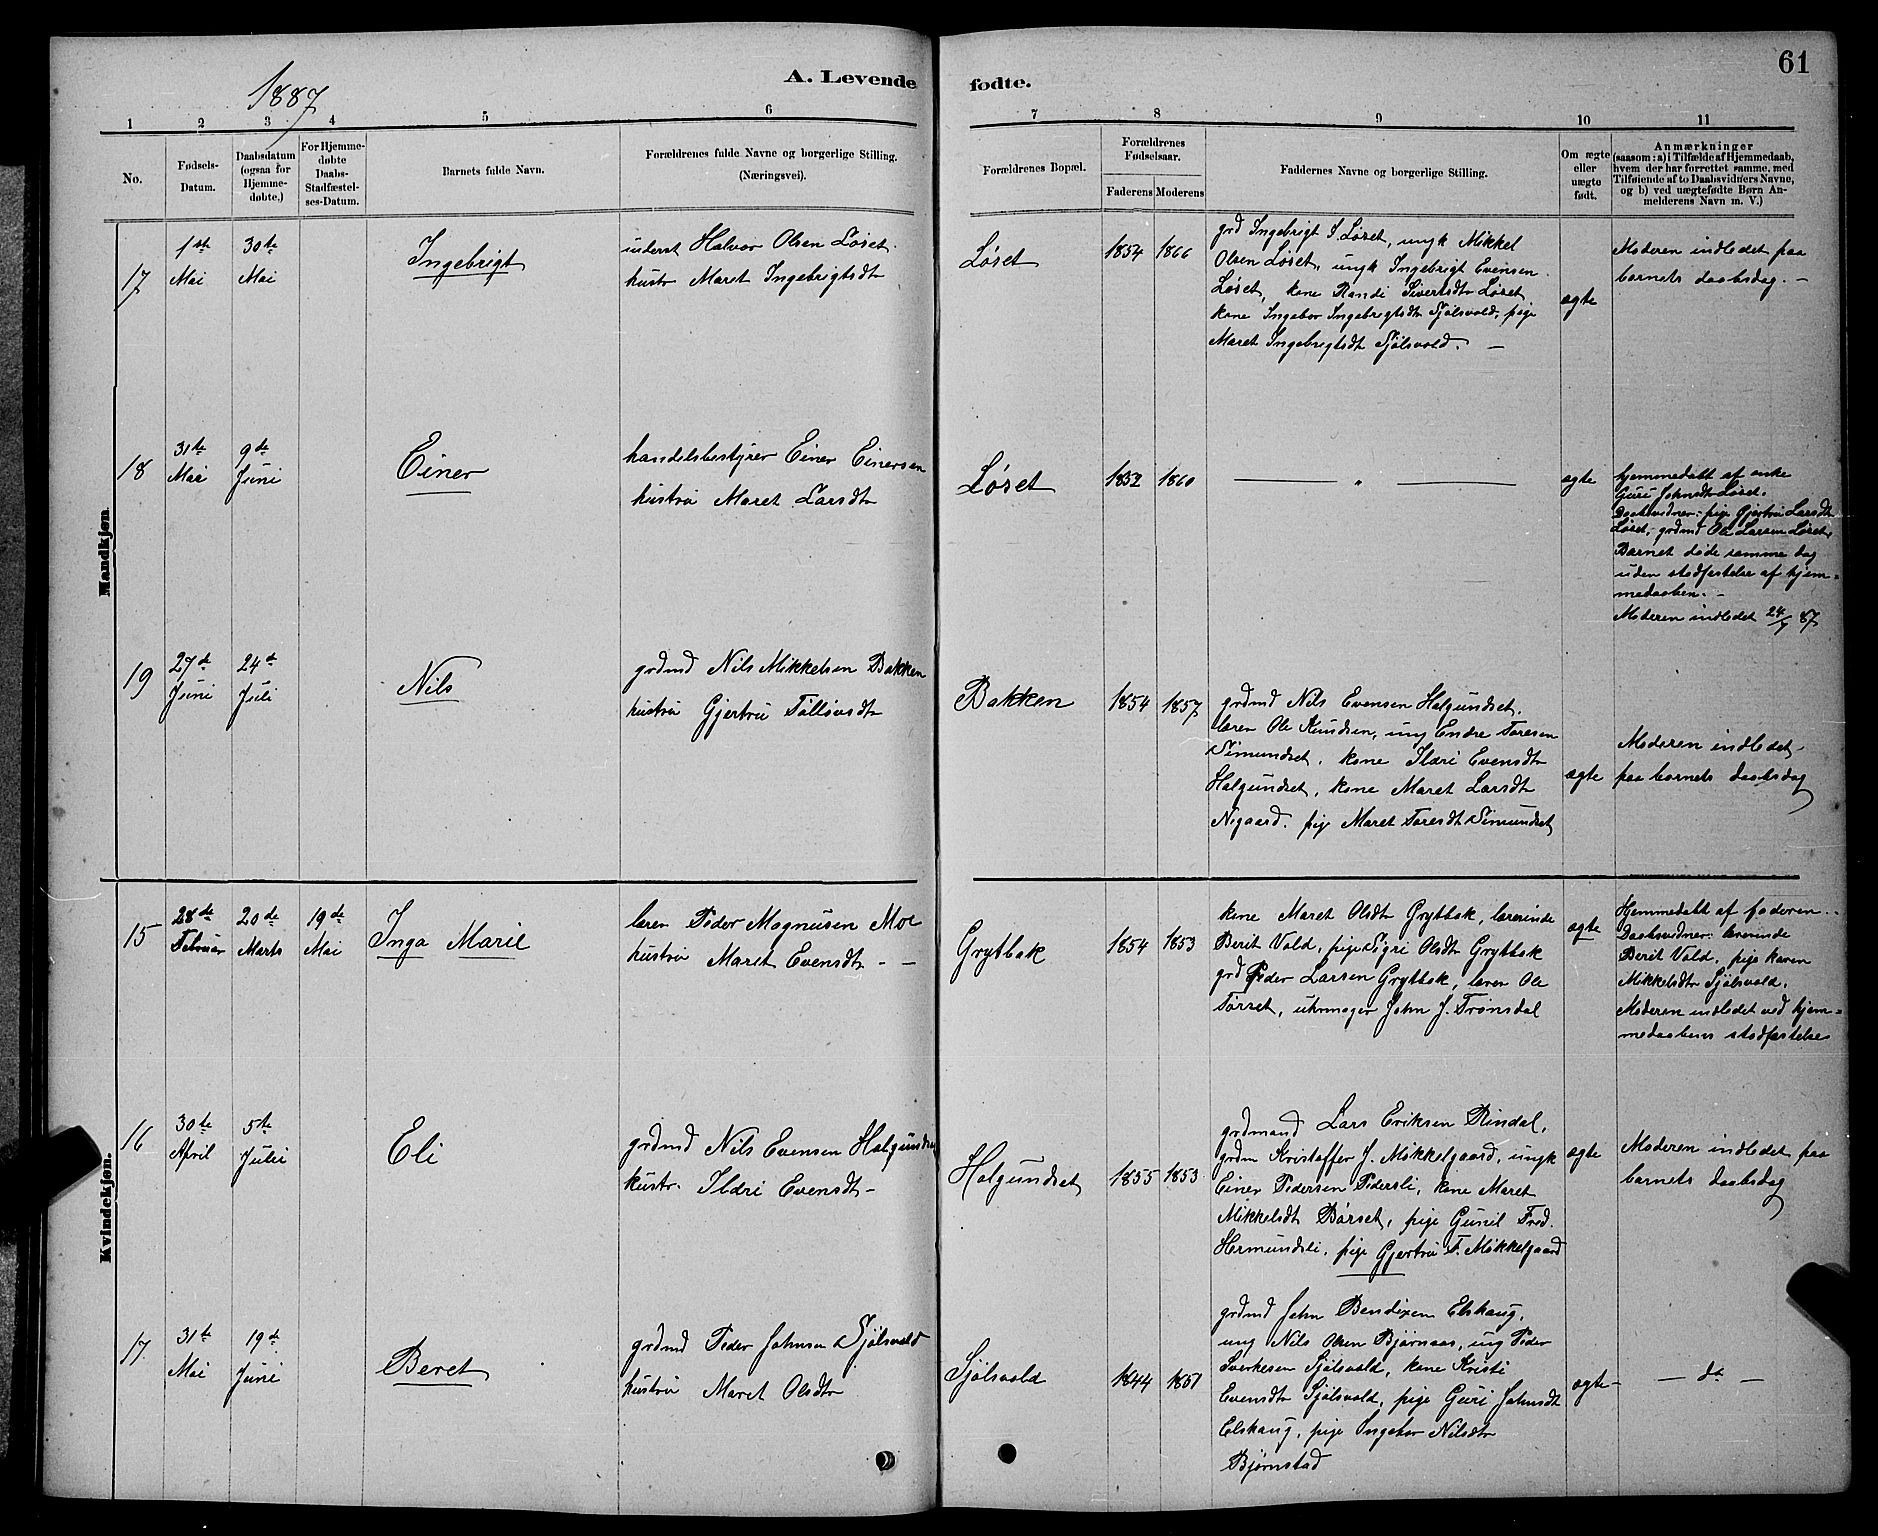 1887
A. Levende
fødte.
61
1
2
3
4
5
6
7
8
9
10
11
No.
Fødsels-
Datum.
Daabsdatum
(ogsaa for
Hjemme-
døbte.)
For Hjemme-
døbte
Daabs-
Stadfæstel-
ses-Datum.
Barnets fulde Navn.
Forældrenes fulde Navne og borgerlige Stilling.
(Næringsvei).
Forældrenes Bopæl.
Forældrenes
Fødselsaar.
Faderens
Moderens
Faddernes Navne og borgerlige Stilling.
Om ægte
eller
uægte
født.
Anmærkninger
(saasom: a) i Tilfælde af Hjemmedaab,
hvem der har forrettet samme, med
Tilføiende af to Daabsvidners Navne,
og b) ved uægtefødte Børn An-
melderens Navn m. V.)
Mandkjøn
17
1ste
Mai
30te
Mai
Ingebrigt
inderst Halvor Olsen Løset
hustr Maret Ingebrigtsdtr
Løset
1854
1866
grd Ingebrigt S. Løset, ungk Mikkel
Olsen Løset, ungk Ingebrigt Evensen
Løset, kone Randi Sivertsdtr Løset,
kone Ingebor Ingebrigtsdtr Sjølsvold, pige
Maret Ingebrigtsdt Sjølsvold. –
ægte
Moderen indledet paa
barnets daabsdag. –
18
31te
Mai
9de
Juni
Einer
handelsbestyrer Einer Einersen
hustru Maret Larsdtr
Løset
1852
1860
— „ —
ægte
hjemmedøbt af enke
Guri Johnsdtr Løset.
Daabsvidner: pige Gjertru Larsdtr
Løset, grdmd Ole Larsen Løset,
Barnet døde samme dag
uden stadfæstelse af hjem-
medaaben. –
Moderen indledet 24/7 87
19
27de
Juni
24de
Juli
Nils
grdmd Nils Mikkelsen Bakken
hustru Gjertru Tølløvsdtr
Bakken
1854
1857
grdmd Nils Evensen Halgundset,
læren Ole Knudsen, ung Endre Toresen
Simundset, kone Ildri Evensdtr
Halgundset, kone Maret Larsdtr
Nigaard, pige Maret Toresdt Simundset
ægte
Moderen indledet
paa barnets daabsdag
Kvindekjøn.
15
28de
Februar
20de
Marts
19de
Mai
Inga Marie
læren Peder Magnusen Moe
hustru Maret Evensdtr – –
Grytbak
1854
1853
kone Maret Olsdtr Grytbak, lærerinde
Berit Vold, pige Sigri Olsdt Grytbak
grd Peder Larsen Grytbak, læren Ole
Tørset, uhrmager John J. Trønsdal
ægte
Hjemmedøbt af faderen.
Daabsvidner: lærerinde
Berit Vold, pige Karen
Mikkelsdtr Sjølsvold.
Moderen indledet ved hjem-
medaabens stadfæstelse
16
30te
April
5te
Juli
Eli
grdmd Nils Evensen Halgundset
hustr. Ildri Evensdt –
Halgundset
1855
1853
grdmand Lars Eriksen Rindal,
grdm Kristoffer J. Mikkelgaard, ungk
Einer Pedersen Pedersli, kone Maret
Mikkelsdt Børset, pige Gunil Fred.
Hermundsli, pige Gjertru F. Mikkelgaard
ægte
Moderen indledet paa
barnets daabsdag
17.
31te
Mai
19de
Juni
Beret
grdmd Peder Johnsen Sjølsvold
hustru Maret Olsdtr
Sjølsvold
1844
1851
grdmd John Bendixen Elshaug,
ung Nils Olsen Bjørnaas, ung Peder
Sverkesen Sjølsvold, kone Kristi
Evensdtr Sjølsvold, pige Guri Johnsdt
Elshaug, pige Ingebor Nilsdtr
Bjørnstad
ægte –
– do –